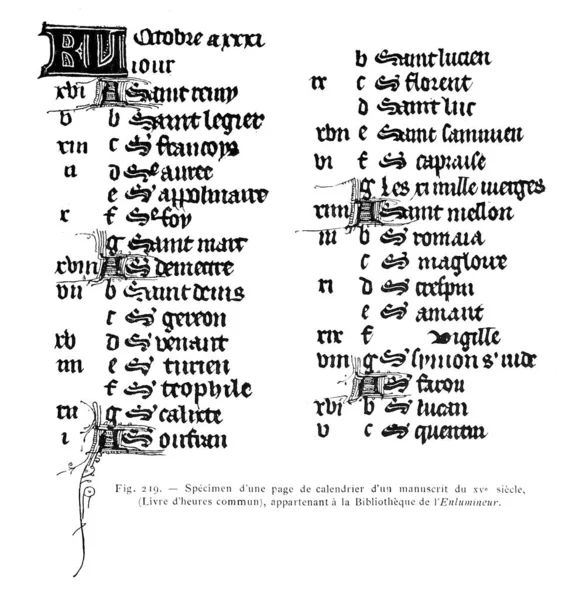 Octobre a xxxi
iour
xvi A Saint remy
v b Saint legier
xiii c S francoys
ii d Se auree
e S' appolinaire
x f Se foy
g Saint marc
xviii A S demetre
vii b Saint denis
c S' gereon
xv d S' venant
iiii e S' turien
f S' trophile
xii g S' calixte
i A S oufran
b Saint lucien
ix c S' florent
d Saint luc
xvii e Saint sauuuen
vi f S' capraise
g Les xi mille vierges
xiiii A Saint mellon
iii b S' romain
c S' magloire
xi d S' crespin
e S' amant
xix f Vigille
viii g S' symon s' iude
A S' faron
xvi b S' lucan
v c S' quentin
Fig. 219. — Spécimen d'une page de calendrier d'un manuscrit du XVe siècle,
(Livre d'heures commun), appartenant à la Bibliothèque de l'Enlumineur.